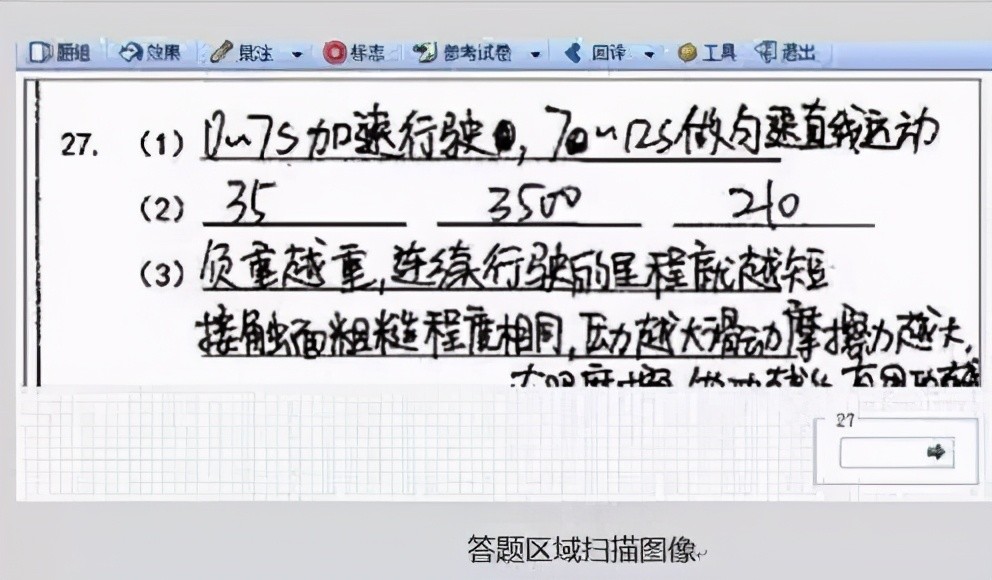 效果 标志 参考试卷 回译 工具 退出
27. (1) 0~7s加速行驶, 7~12s做匀速直线运动
(2) 35 3500 210
(3) 负重越重,连续行驶的里程就越短
接触面粗糙程度相同,压力越大滑动摩擦力越大,
27
答题区域扫描图像